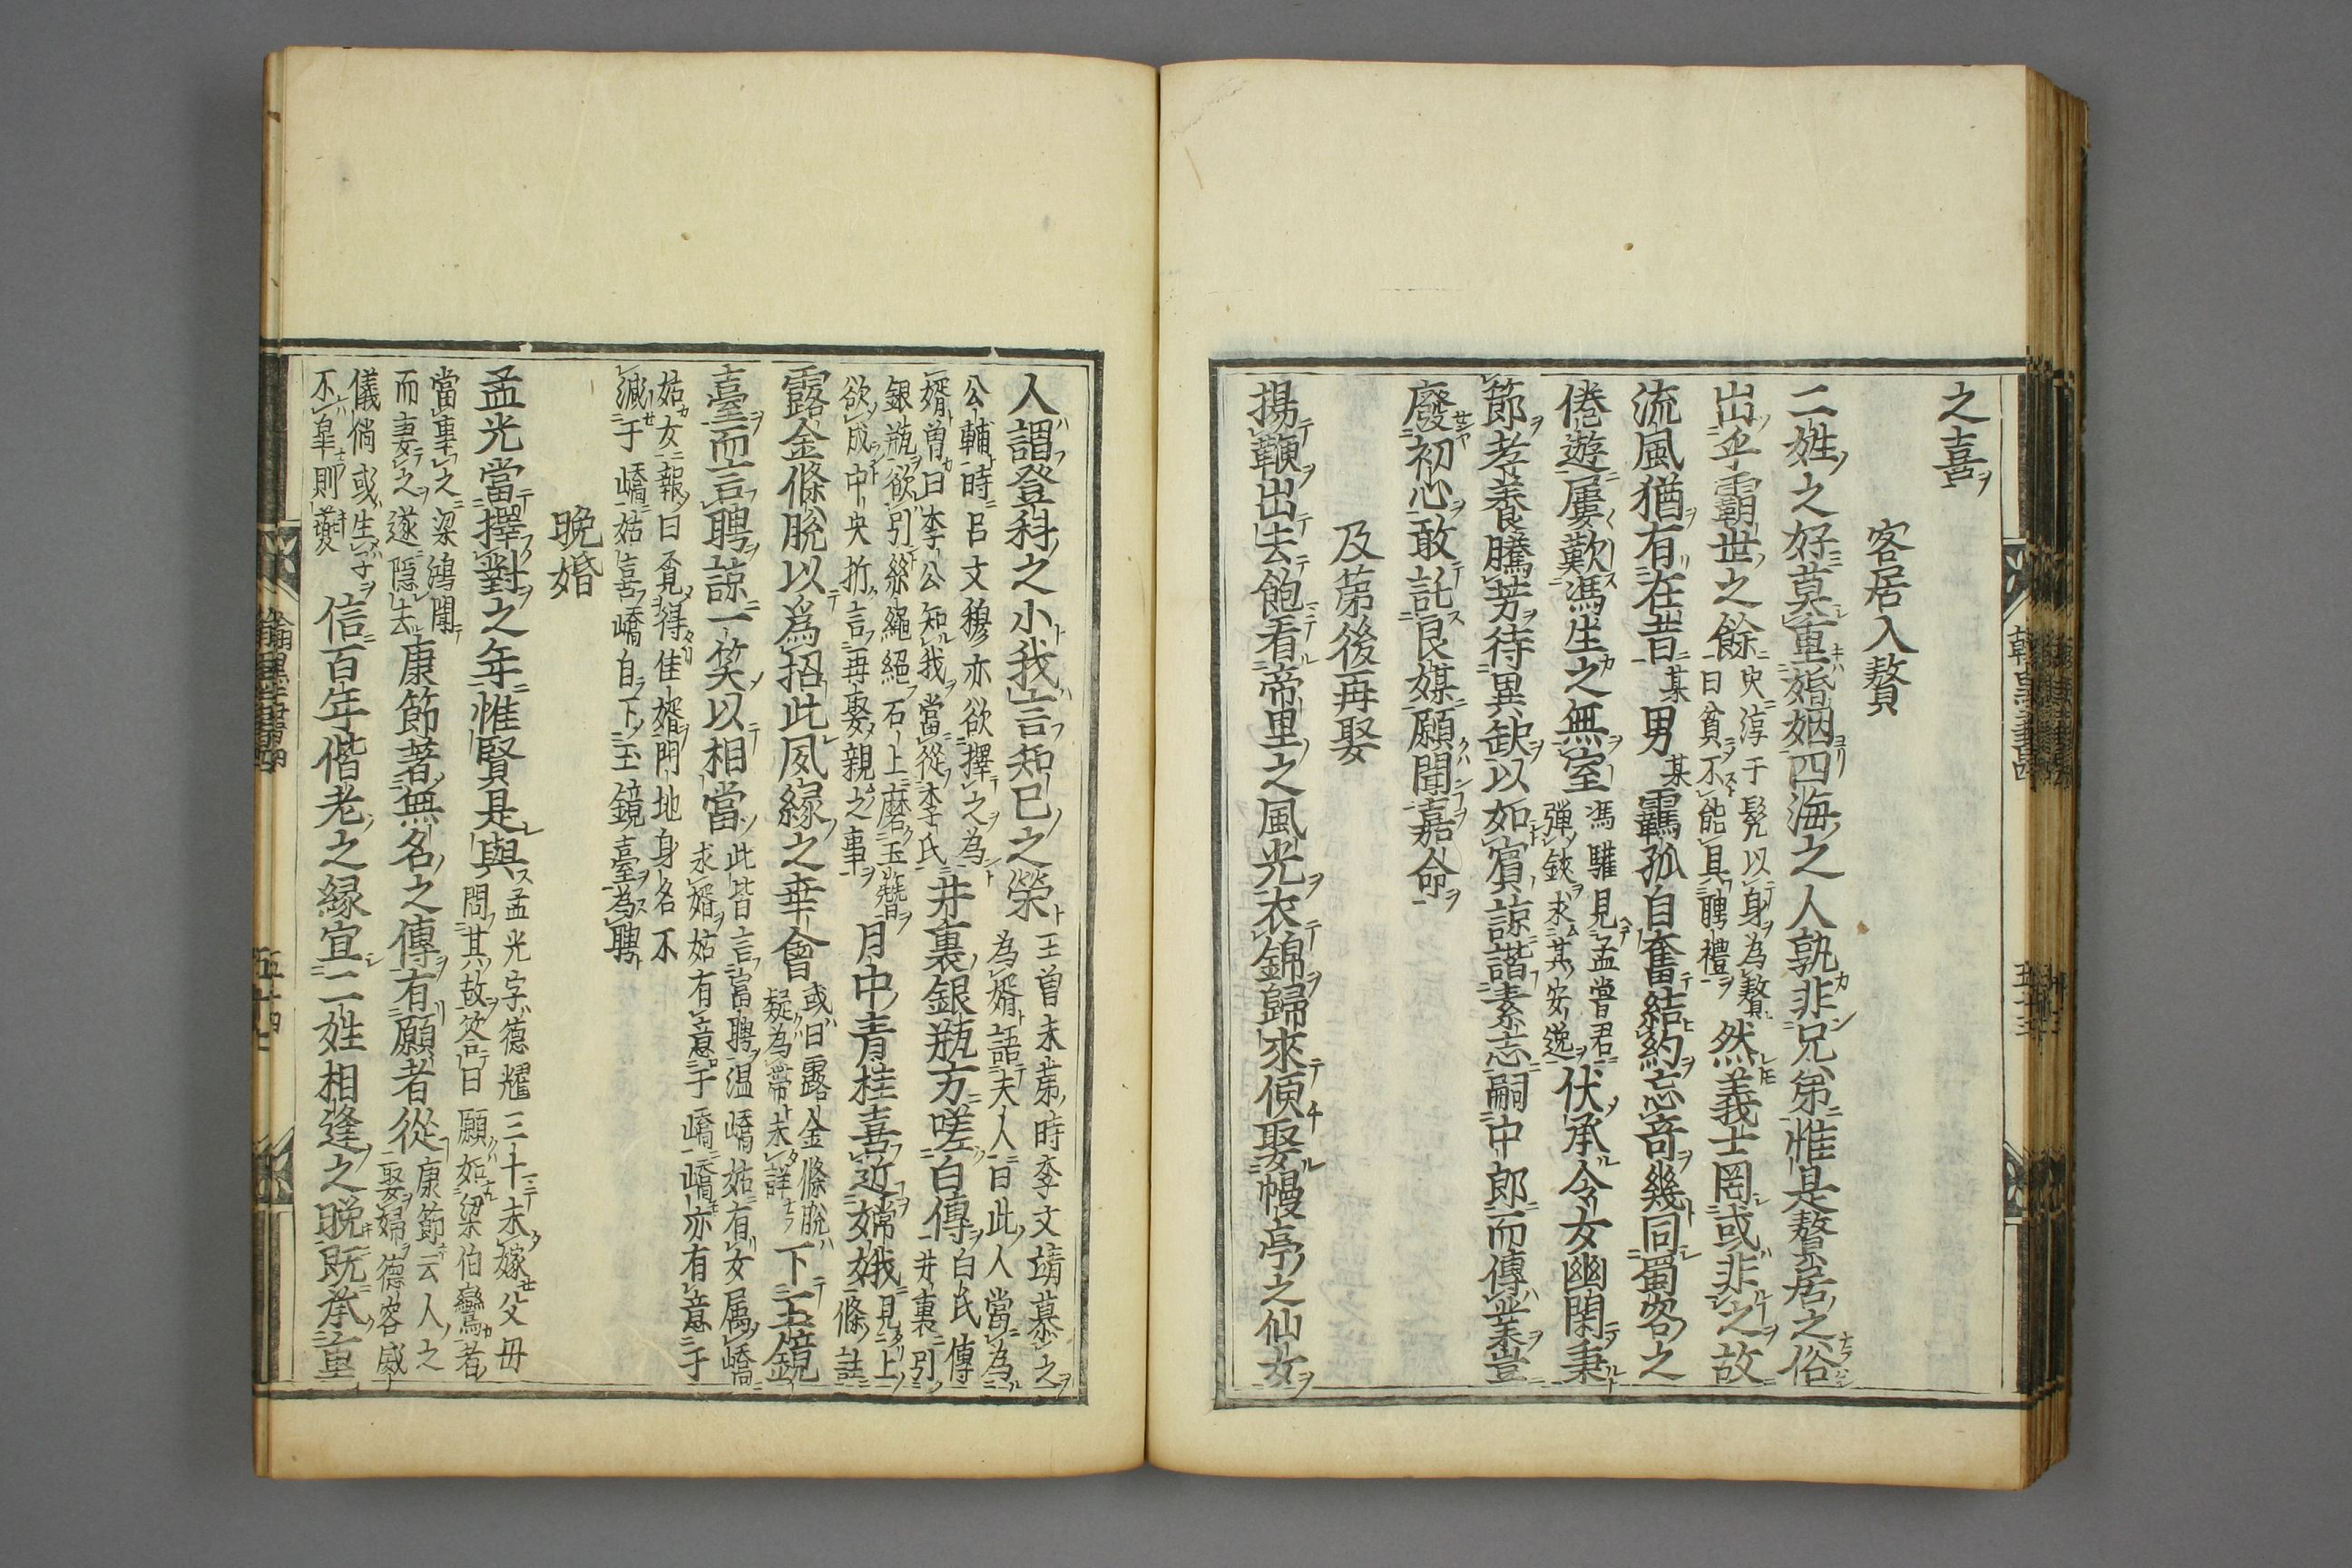 之喜
客居入贅
二姓之好莫重婚姻四海之人孰非兄弟惟是贅居之俗
出乎霸世之餘史淳于髡以身為贅
曰貧不能具聘禮然義士罔或非之故
流風猶有在昔某男某羈孤自奮結約忘竒幾同蜀客之
倦遊屢歎馮生之無室馮驩見孟嘗君
彈鋏求其安逸伏承令女幽閑秉
節孝養騰芳待異缺以如賓諒諧素志嗣中郎而傳業豈
廢初心敢託良媒願聞嘉命
及第後再娶
揚鞭出去飽看帝里之風光衣錦歸來便娶幔亭之仙女
人謂登科之小我言知已之榮王曽未第時李文靖慕之
為婿語夫人曰此人當為
公輔時呂文穆亦欲擇之為
婿曽曰李公知我當從李氏井裏銀瓶方嗟白傳白氏傳
井裏引
銀瓶欲引絲繩絕石上磨玉簪
欲成中央折言再娶親之事月中青桂喜近嫦娥見上
條註
露金條脫以爲招此夙緣之幸會或曰露金條脫
疑為帶未詳下玉鏡
臺而言聘諒一笑以相當此皆言富聘温嶠姑有女属嶠
求婿姑有意于嶠嶠亦有意于
姑女報曰覔得佳婿門地身名不
減于嶠姑喜嶠自下玉鏡臺為聘
晚婚
孟光當擇對之年惟賢是與孟光字德耀三十未嫁父母
問其故答曰願如梁伯鸞者
當事之梁鴻聞
而妻之遂隱去康節著無名之傳有願者從康節云人之
娶婦德容威
儀倘或生子
不皐則夔信百年偕老之緣宜二姓相逢之晚既承重
翰墨全書四
五十四